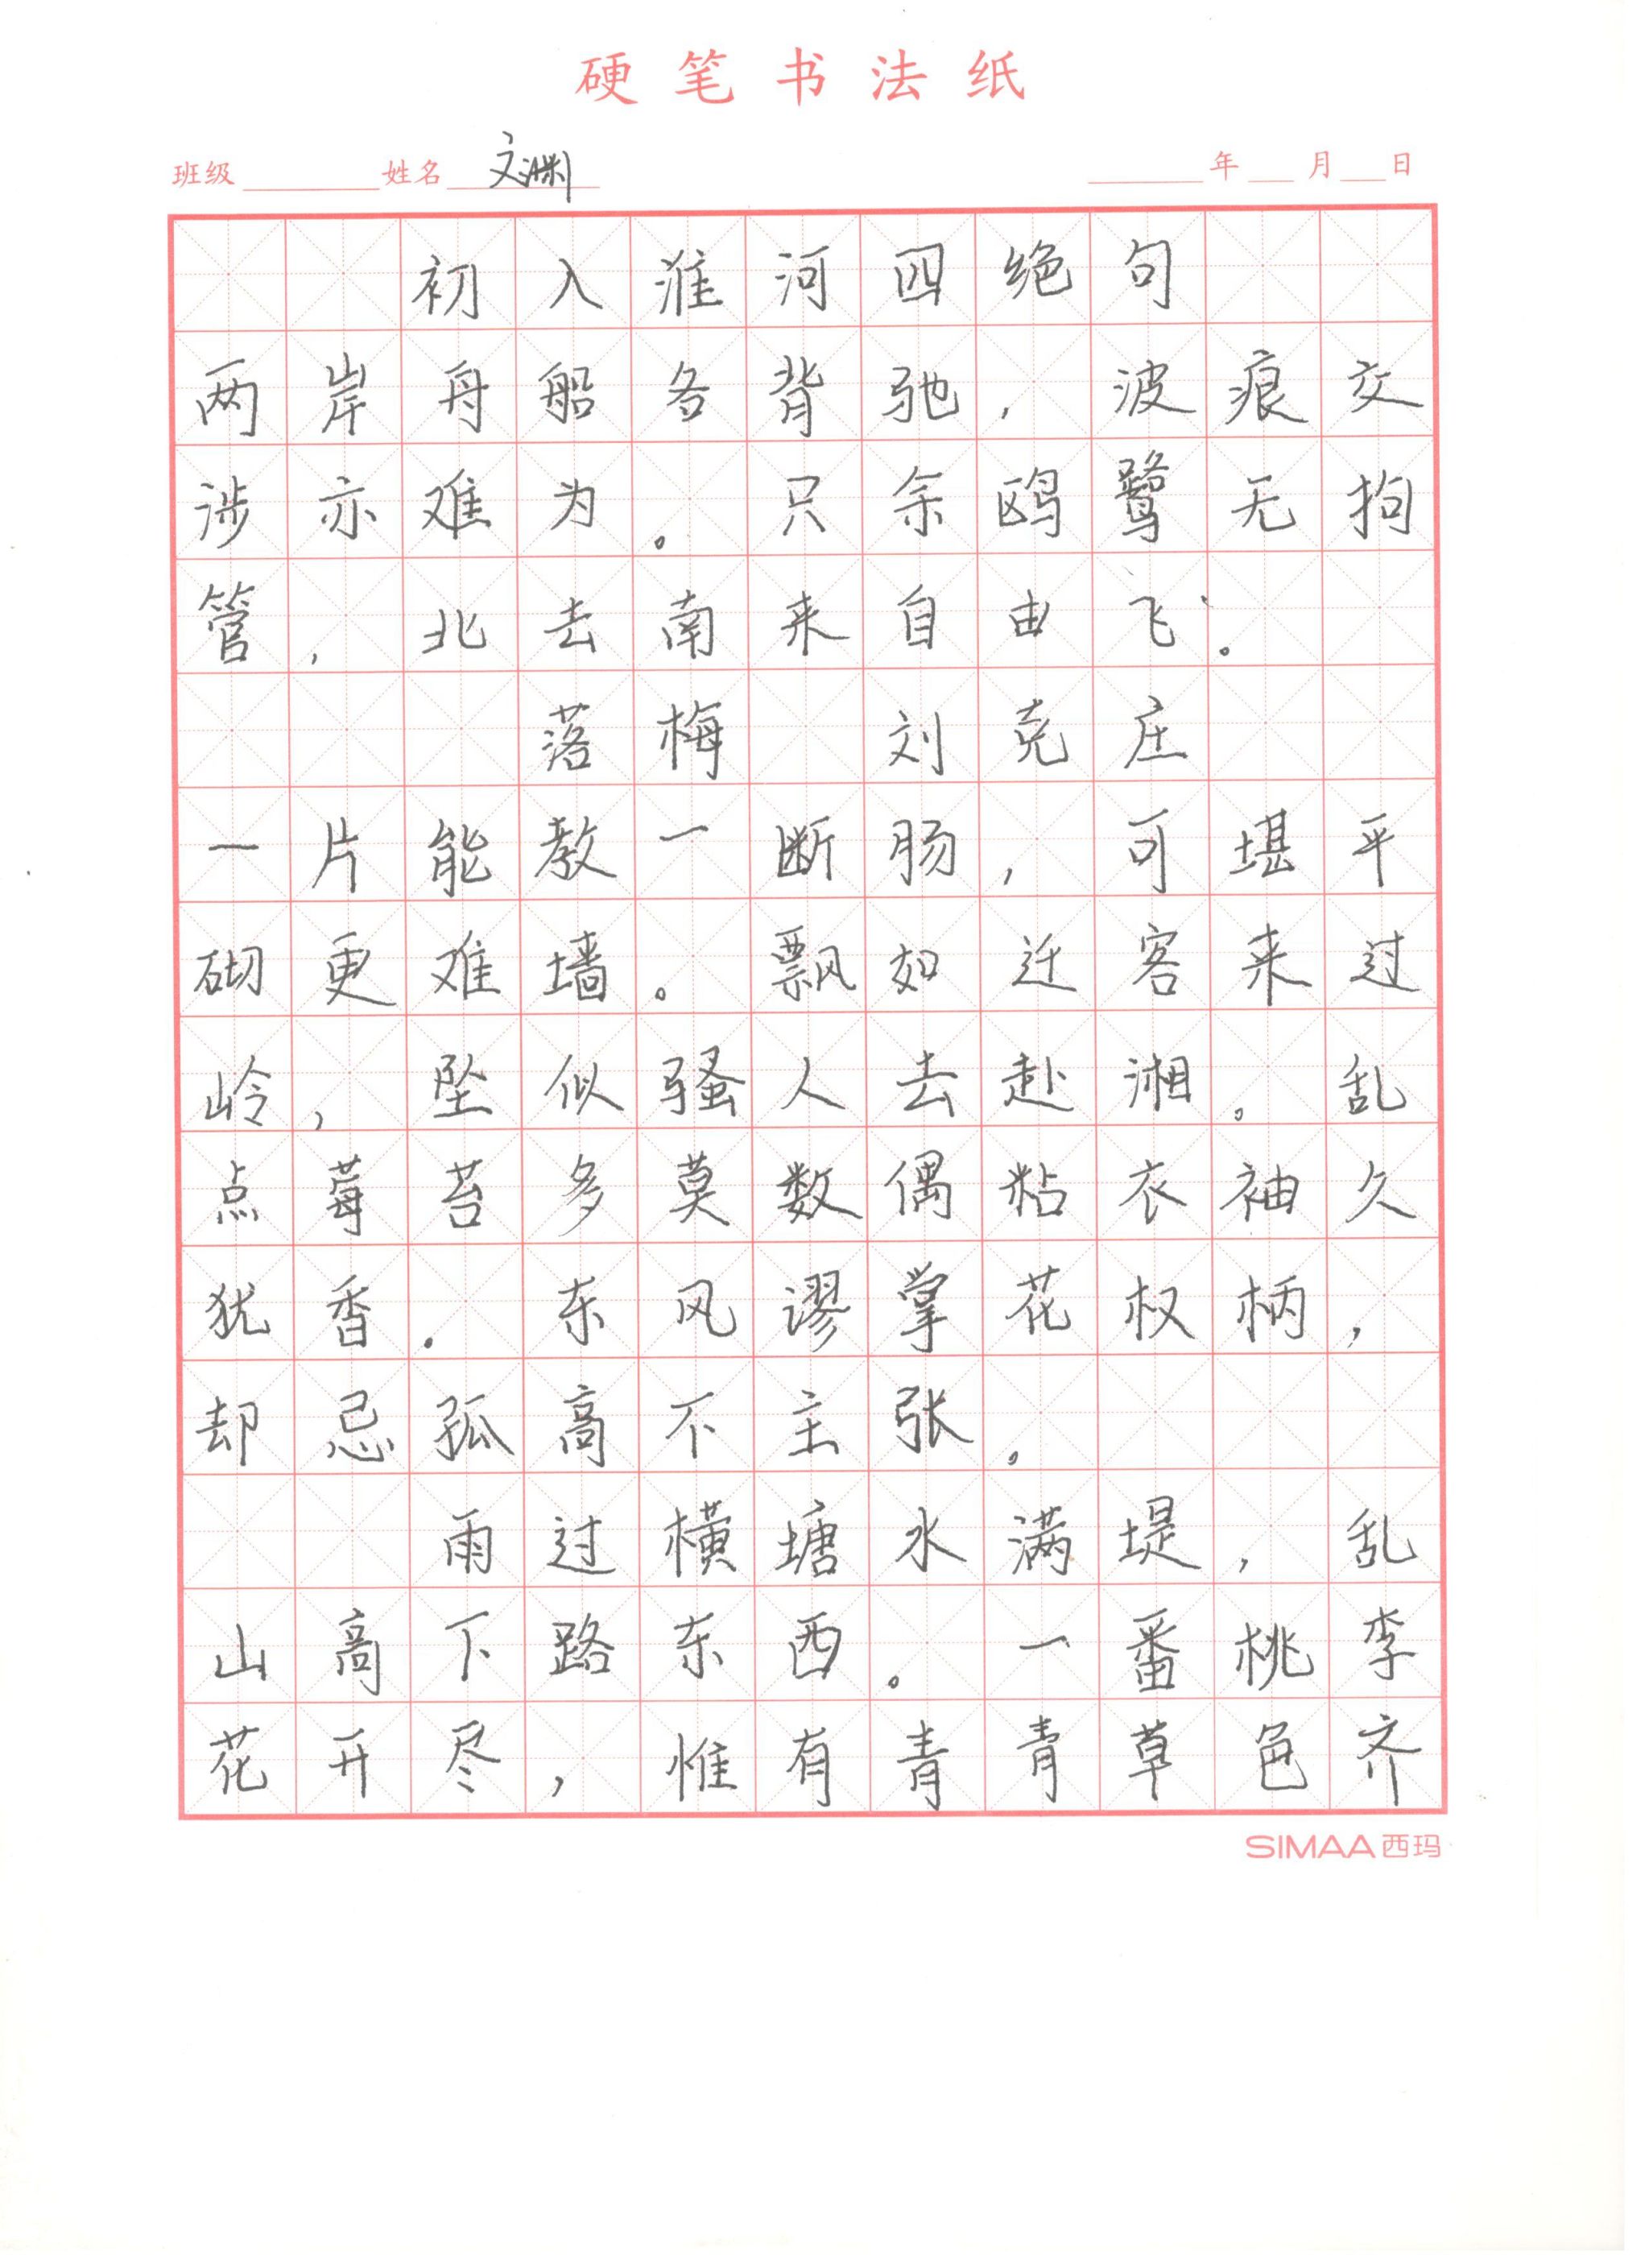 硬笔书法纸
班级 姓名 文渊 年 月 日
初入淮河四绝句
两岸舟船各背驰，波痕交
涉亦难为。只余鸥鹭无拘
管，北去南来自由飞。
落梅 刘克庄
一片能教一断肠，可堪平
砌更难墙。飘如迁客来过
岭，坠似骚人去赴湘。乱
点莓苔多莫数偶粘衣袖久
犹香.东风谬掌花权柄，
却忌孤高不主张。
雨过横塘水满堤，乱
山高下路东西。一番桃李
花开尽，惟有青青草色齐
SIMAA西玛